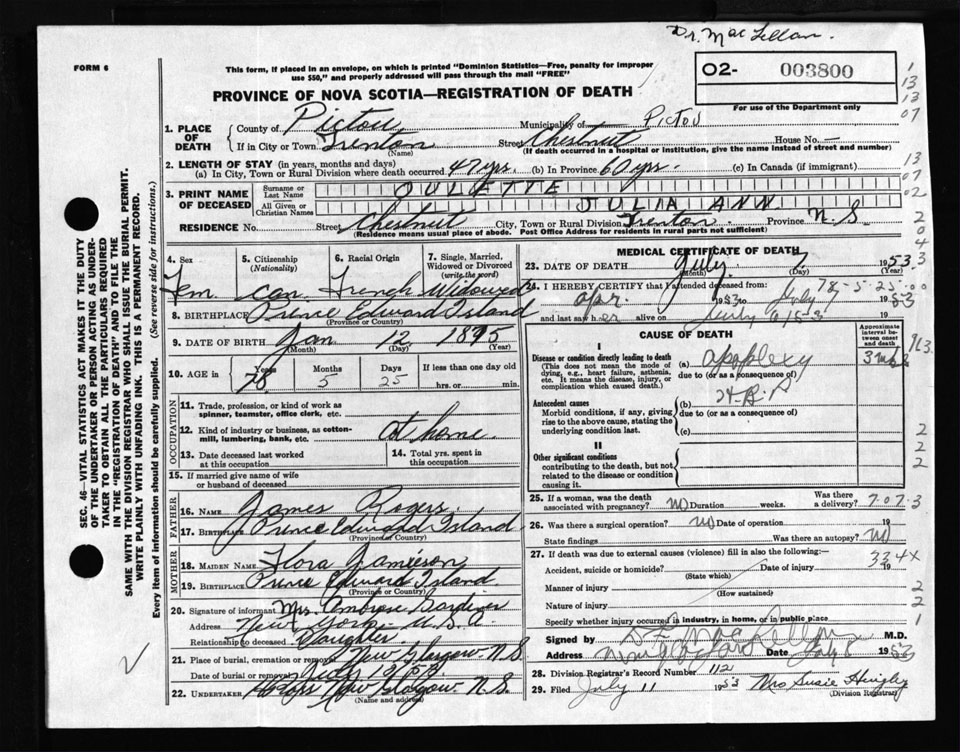 Dr. MacLellan.
FORM 6
This form, if placed in an envelope, on which is printed "Dominion Statistics—Free, penalty for improper use $50," and properly addressed will pass through the mail "FREE"
02- 003800
For use of the Department only
PROVINCE OF NOVA SCOTIA—REGISTRATION OF DEATH
1. PLACE OF DEATH
County of Pictou Municipality of Pictou
If in City or Town Trenton (Name) Street Chestnut House No. —
(If death occurred in a hospital or institution, give the name instead of street and number)
2. LENGTH OF STAY (in years, months and days)
(a) In City, Town or Rural Division where death occurred 47 yrs. (b) In Province 60 yrs (c) In Canada (if immigrant)
3. PRINT NAME OF DECEASED
Surname or Last Name OULETTE
All Given or Christian Names JULIA ANN
RESIDENCE No. Street Chestnut City, Town or Rural Division Trenton. Province N.S
(Residence means usual place of abode. Post Office Address for residents in rural parts not sufficient)
4. Sex 5. Citizenship (Nationality) 6. Racial Origin 7. Single, Married, Widowed or Divorced (write the word)
Fem Can. French Widowed
8. BIRTHPLACE Prince Edward Island
(Province or Country)
9. DATE OF BIRTH Jan 12 1875
(Month) (Day) (Year)
10. AGE in Years 78 Months 5 Days 25 If less than one day old
hrs. or min.
OCCUPATION
11. Trade, profession, or kind of work as spinner, teamster, office clerk, etc.
12. Kind of industry or business, as cotton-mill, lumbering, bank, etc. At home.
13. Date deceased last worked at this occupation 14. Total yrs. spent in this occupation
15. If married give name of wife or husband of deceased
FATHER
16. NAME James Rogers
17. BIRTHPLACE Prince Edward Island
(Province or Country)
MOTHER
18. MAIDEN NAME Flora Jamieson
19. BIRTHPLACE Prince Edward Island
(Province or Country)
20. Signature of informant Mrs. Ambrose
Address New York U.S.A
Relationship to deceased Daughter
21. Place of burial, cremation or removal New Glasgow N.S.
Date of burial or removal 1953
22. UNDERTAKER New Glasgow N.S.
(Name and address)
MEDICAL CERTIFICATE OF DEATH
23. DATE OF DEATH July 7 1953
(Month) (Day) (Year)
78-5-25-00
24. I HEREBY CERTIFY that I attended deceased from
Apr 1953 to July 1953
and last saw her alive on July 6 1953
CAUSE OF DEATH
Approximate interval between onset and death
I
Disease or condition directly leading to death
(This does not mean the mode of dying, e.g., heart failure, asthenia, etc. It means the disease, injury, or complication which caused death.)
(a) apoplexy
due to (or as a consequence of)
Antecedent causes
Morbid conditions, if any, giving rise to the above cause, stating the underlying condition last.
(b) H.B.P
due to (or as a consequence of)
(c)
II
Other significant conditions
contributing to the death, but not related to the disease or condition causing it.
25. If a woman, was the death associated with pregnancy? No Duration weeks. Was there a delivery?
7-07-3
26. Was there a surgical operation? No Date of operation 19
State findings Was there an autopsy? No
27. If death was due to external causes (violence) fill in also the following:—
334X
Accident, suicide or homicide? (State which) Date of injury 19
Manner of injury (How sustained)
Nature of injury
Specify whether injury occurred in industry, in home, or in public place
Signed by MacLellan M.D.
Address New Glasgow Date July 8 1953
28. Division Registrar's Record Number 112
29. Filed July 11 1953 Mrs Susie Hingley
(Division Registrar)
SEC. 46—VITAL STATISTICS ACT MAKES IT THE DUTY OF THE UNDERTAKER OR PERSON ACTING AS UNDERTAKER TO OBTAIN ALL THE PARTICULARS REQUIRED IN THE "REGISTRATION OF DEATH" AND TO FILE THE SAME WITH THE DIVISION REGISTRAR WHO SHALL ISSUE THE BURIAL PERMIT.
WRITE PLAINLY WITH UNFADING INK. THIS IS A PERMANENT RECORD.
Every item of information should be carefully supplied. (See reverse side for instructions.)
1
13
13
07
13
07
02
2
0
4
3
2
2
2
2
2
1